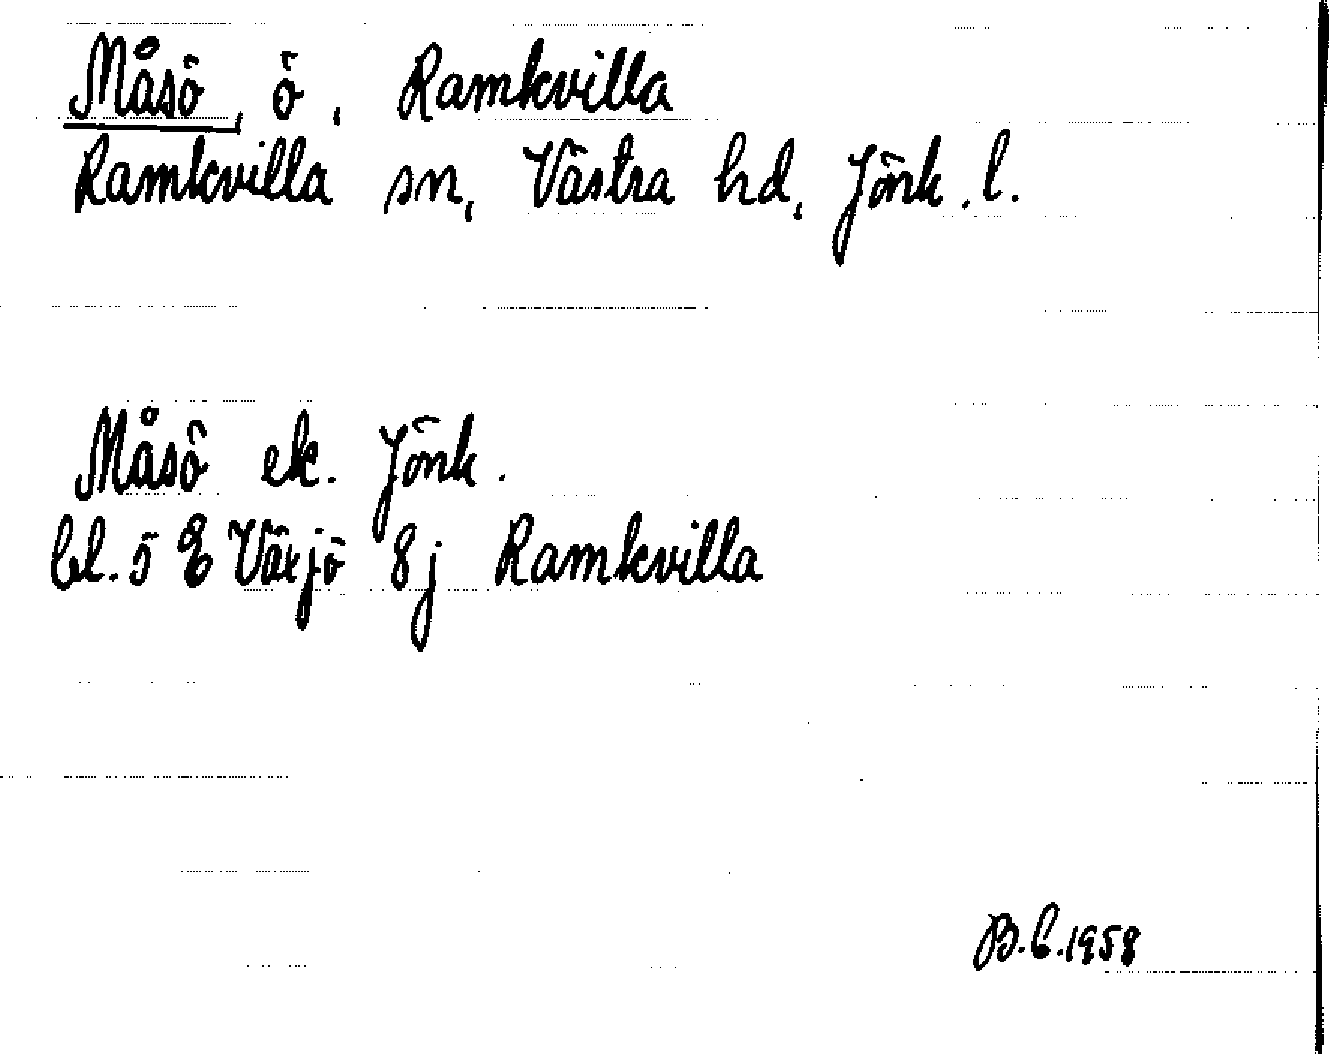 Måsö, ö, Ramkvilla
Ramkvilla sn, Västra hd, Jönk. l.
Måsö ek. Jönk.
bl. 5 E Växjö 8j Ramkvilla
B.C.1958